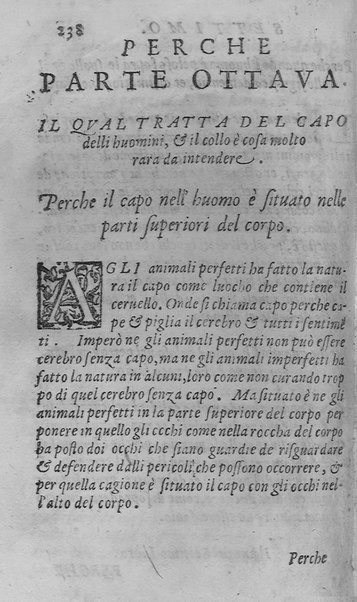 238
PERCHE
PARTE OTTAVA.
IL QVAL TRATTA DEL CAPO
delli huomini, & il collo è cosa molto
rara da intendere.
Perche il capo nell' huomo è situato nelle
parti superiori del corpo.
AGLI animali perfetti ha fatto la natu-
ra il capo come luocho che contiene il
ceruello. Onde si chiama capo perche ca-
pe & piglia il cerebro & tutti i sentimē
ti. Imperò ne gli animali perfetti non può essere
cerebro senza capo, ma ne gli animali imperfetti ha
fatto la natura in alcuni, loro come non curando trop
po di quel cerebro senza capo. Ma situato è ne gli
animali perfetti in la parte superiore del corpo per
ponere in quello gli occhi come nella roccha del corpo
ha posto doi occhi che siano guardie de risguardare
& defendere dalli pericoli che possono occorrere, &
per quella cagione è situato il capo con gli occhi nel-
l'alto del corpo.
Perche